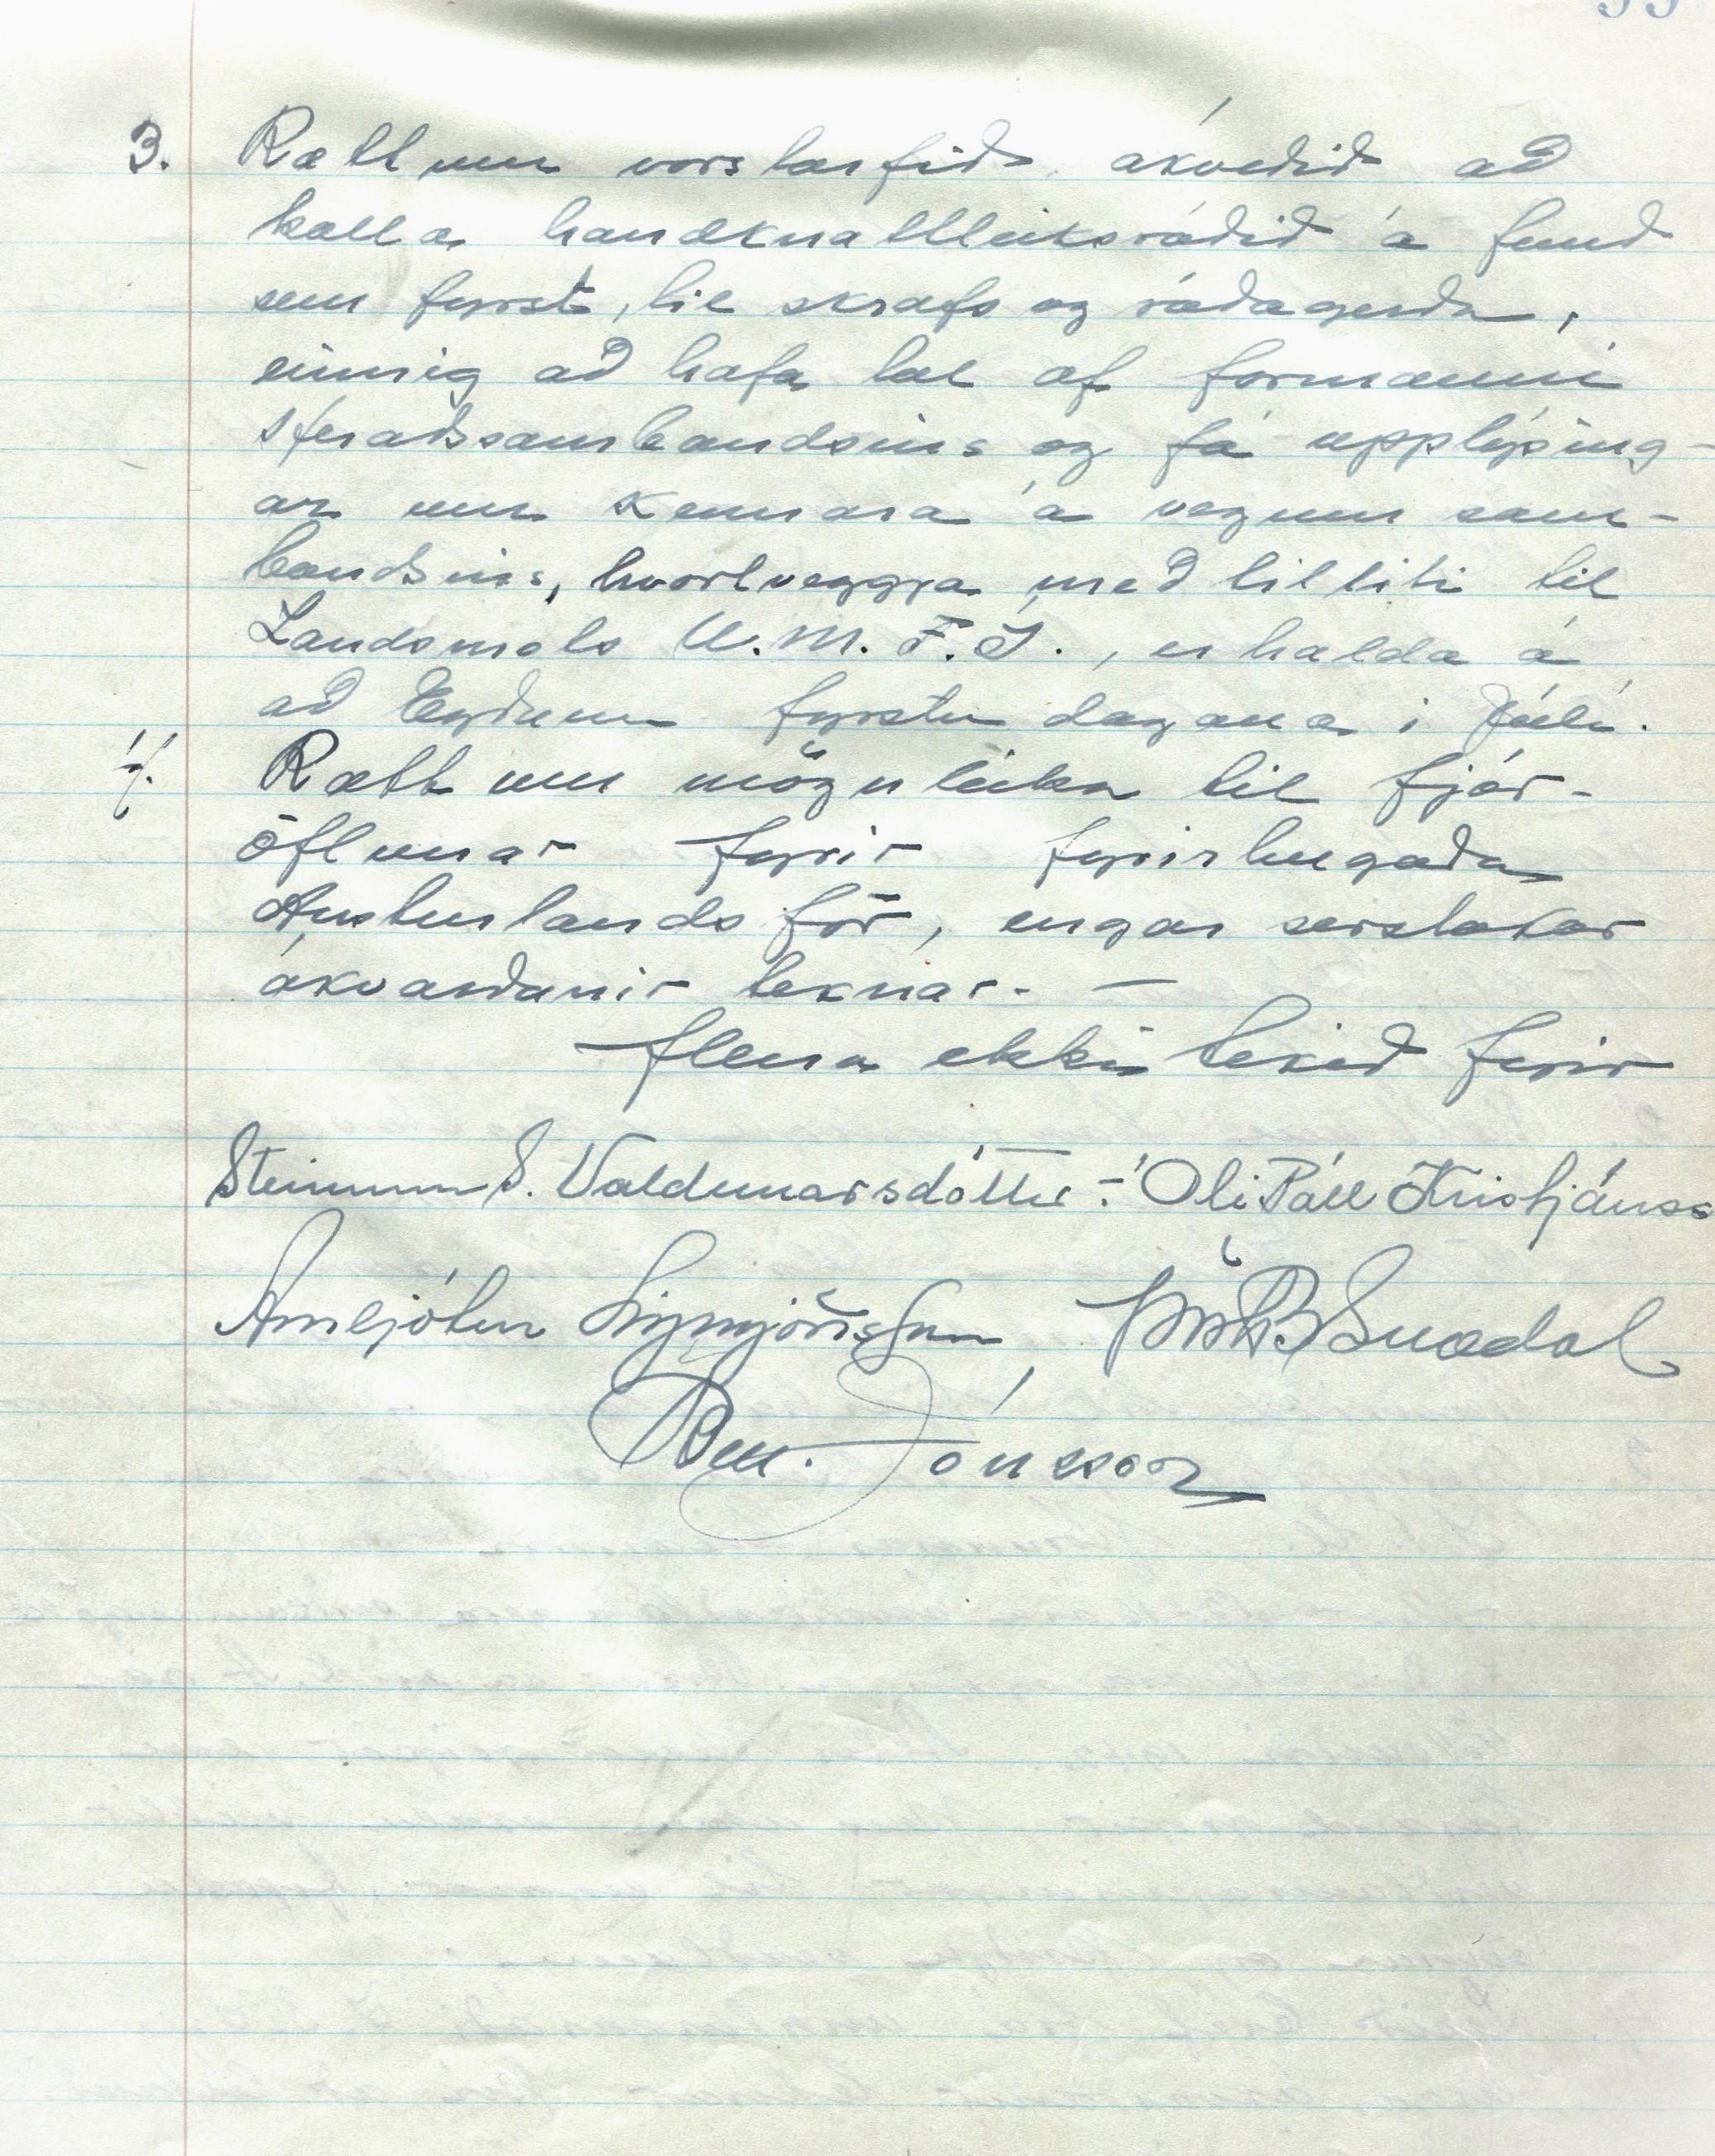 3. Rætt um vorstarfið, ákveðið að
kalla handknattleiksráðið á fund
sem fyrst, til skrafs og ráðagerða,
einnig að hafa tal af formanni
Héraðssambandsins og fá upplýsing-
ar um kennara á vegum sam-
bandsins, hvortveggja með tilliti til
Landsmóts U.M.F.Í., er halda á
að Eyðum fyrstu dagana í Júlí.
4. Rætt um möguleika til fjár-
öflunar fyrir fyrirhugaða
Austurlandsför, engar serstakar
ákvarðanir teknar. —
Fleira ekki tekið fyrir
Steinunn S. Valdimarsdóttir - Óli Páll Kristjánss
Arnljótur Sigurjónsson Snædal
Ben. Jónsson